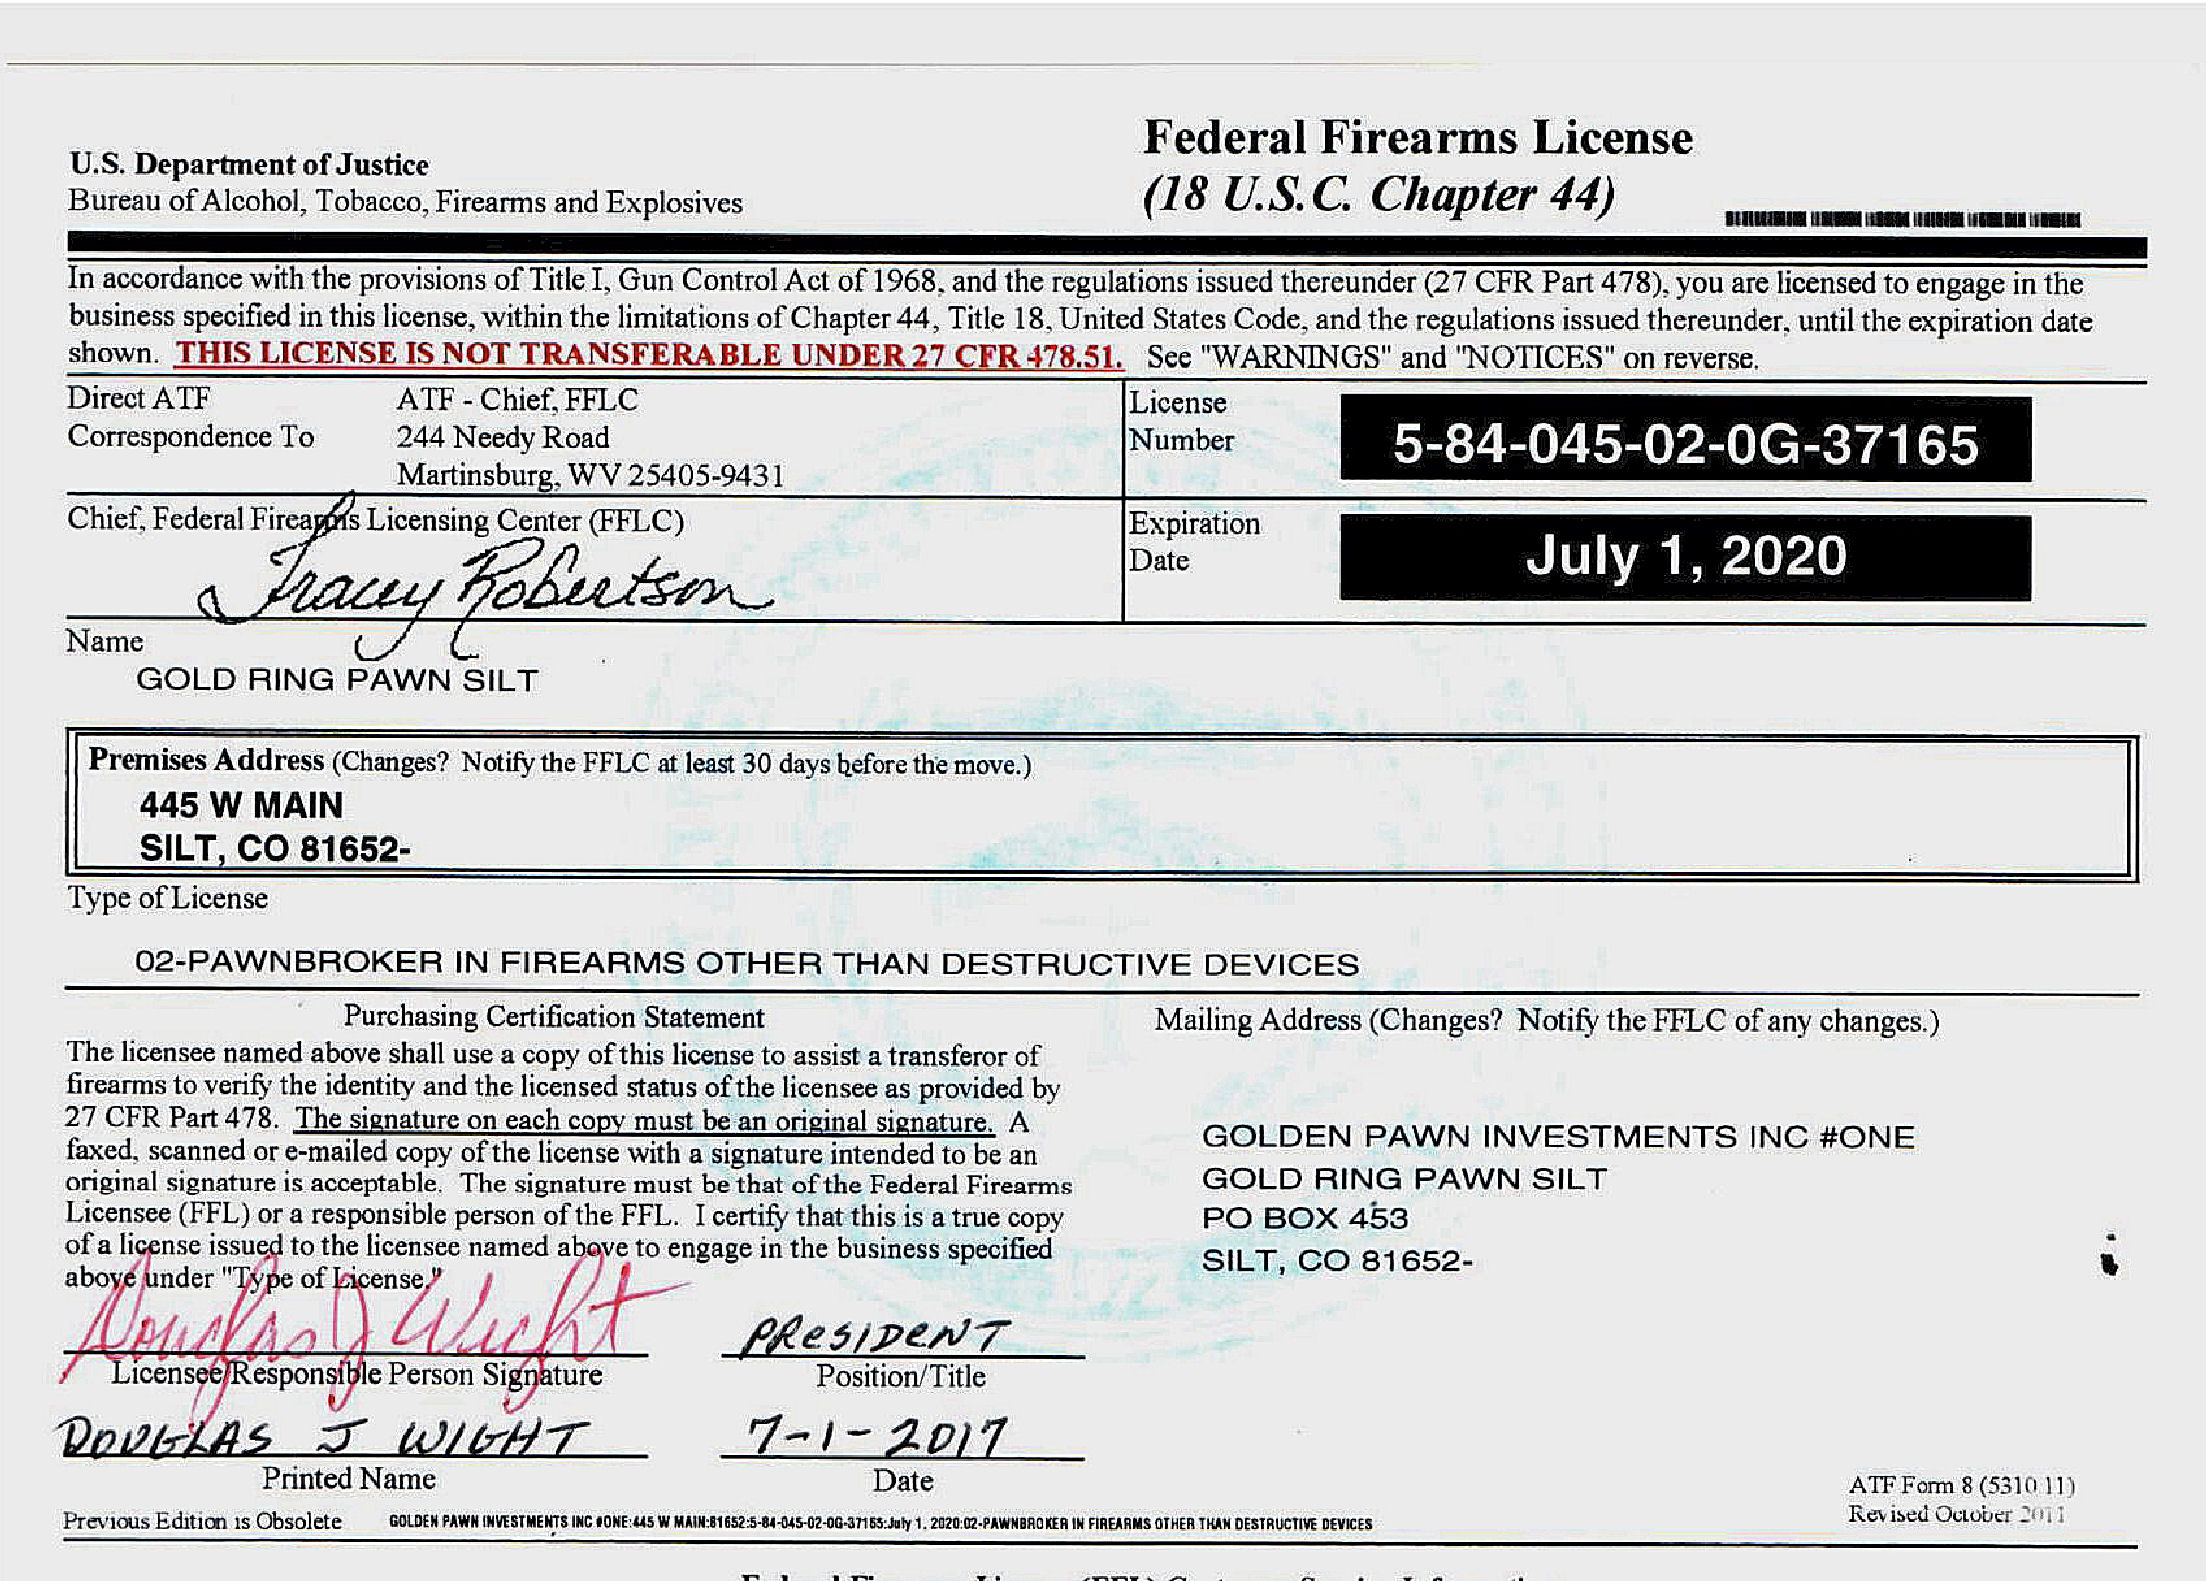 U.S. Department of Justice
Bureau of Alcohol, Tobacco, Firearms and Explosives
Federal Firearms License
(18 U.S.C. Chapter 44)
In accordance with the provisions of Title I, Gun Control Act of 1968, and the regulations issued thereunder (27 CFR Part 478), you are licensed to engage in the
business specified in this license, within the limitations of Chapter 44, Title 18, United States Code, and the regulations issued thereunder, until the expiration date
shown. THIS LICENSE IS NOT TRANSFERABLE UNDER 27 CFR 478.51. See "WARNINGS" and "NOTICES" on reverse.
Direct ATF
Correspondence To
ATF - Chief, FFLC
244 Needy Road
Martinsburg, WV 25405-9431
License
Number
5-84-045-02-0G-37165
Chief, Federal Firearms Licensing Center (FFLC)
Tracey Robertson
Expiration
Date
July 1, 2020
Name
GOLD RING PAWN SILT
Premises Address (Changes? Notify the FFLC at least 30 days before the move.)
445 W MAIN
SILT, CO 81652-
Type of License
02-PAWNBROKER IN FIREARMS OTHER THAN DESTRUCTIVE DEVICES
Purchasing Certification Statement
The licensee named above shall use a copy of this license to assist a transferor of
firearms to verify the identity and the licensed status of the licensee as provided by
27 CFR Part 478. The signature on each copy must be an original signature. A
faxed, scanned or e-mailed copy of the license with a signature intended to be an
original signature is acceptable. The signature must be that of the Federal Firearms
Licensee (FFL) or a responsible person of the FFL. I certify that this is a true copy
of a license issued to the licensee named above to engage in the business specified
above under "Type of License."
Mailing Address (Changes? Notify the FFLC of any changes.)
GOLDEN PAWN INVESTMENTS INC #ONE
GOLD RING PAWN SILT
PO BOX 453
SILT, CO 81652-
Douglas J Wight
Licensee/Responsible Person Signature
PRESIDENT
Position/Title
DOUGLAS J WIGHT
Printed Name
7-1-2017
Date
ATF Form 8 (5310.11)
Revised October 2011
Previous Edition is Obsolete
GOLDEN PAWN INVESTMENTS INC #ONE:445 W MAIN:81652:5-84-045-02-0G-37165:July 1, 2020:02-PAWNBROKER IN FIREARMS OTHER THAN DESTRUCTIVE DEVICES